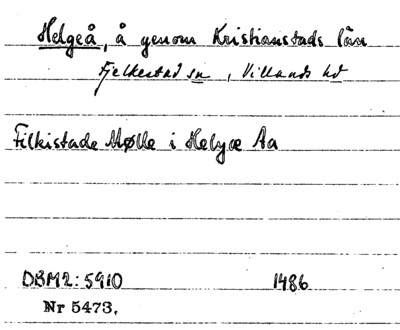 Helgeå, å genom Kristianstads län
Fjelkestad sn, Villands hd
Filkistade Mølle i Helyæ Aa
DBM2:5910 1486
Nr 5473.